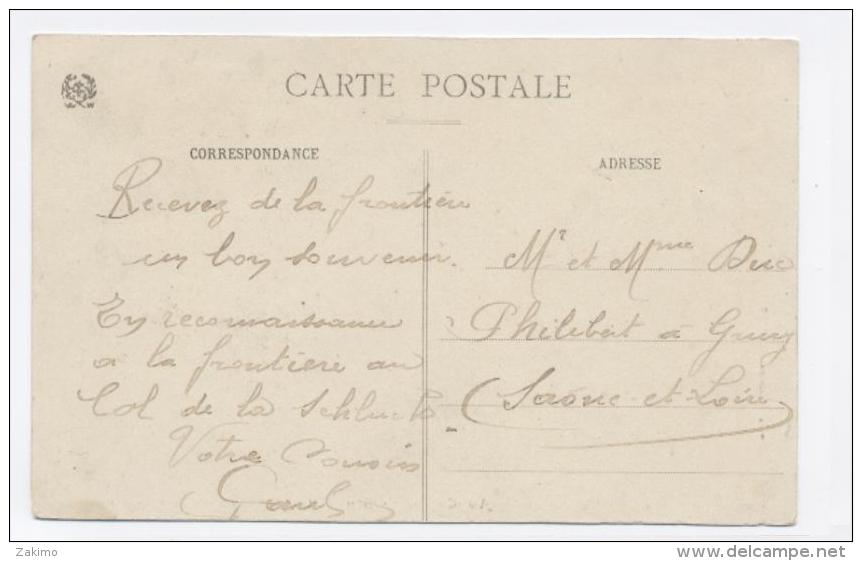 CARTE POSTALE
CORRESPONDANCE
Recevez de la frontière
un bon souvenir.
En reconnaissance
a la frontière au
Col de la Schlucht
Votre Cousin
ADRESSE
Mr et Mme Duc
Philibert à
(Saône-et-Loire)
Zakimo
http://www.delcampe.net